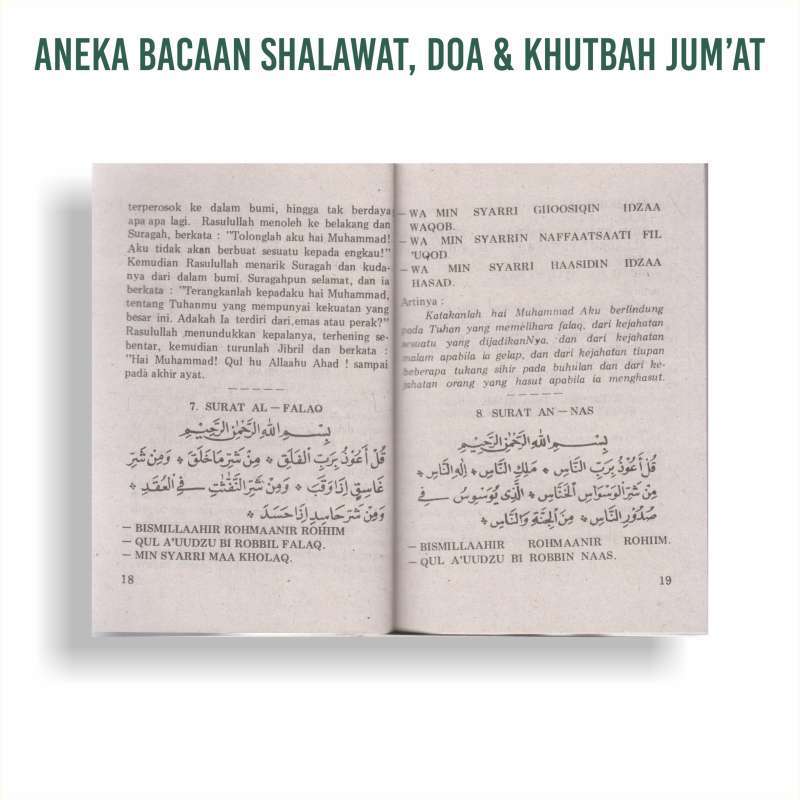 ANEKA BACAAN SHALAWAT, DOA & KHUTBAH JUM’AT
terperosok ke dalam bumi, hingga tak berdaya
apa apa lagi. Rasulullah menoleh ke belakang dan
Suragah, berkata : "Tolonglah aku hai Muhammad!
Aku tidak akan berbuat sesuatu kepada engkau!"
Kemudian Rasulullah menarik Suragah dan kuda-
nya dari dalam bumi. Suragahpun selamat, dan ia
berkata : "Terangkanlah kepadaku hai Muhammad,
tentang Tuhanmu yang mempunyai kekuatan yang
besar ini. Adakah Ia terdiri dari emas atau perak?"
Rasulullah menundukkan kepalanya, terhening se-
bentar, kemudian turunlah Jibril dan berkata :
"Hai Muhammad! Qul hu Allaahu Ahad ! sampai
pada akhir ayat.
7. SURAT AL – FALAQ
بِسْمِ اللهِ الرَّحْمٰنِ الرَّحِيْمِ
قُلْ اَعُوْذُ بِرَبِّ الْفَلَقِ * مِنْ شَرِّ مَا خَلَقَ * وَمِنْ شَرِّ
غَاسِقٍ اِذَا وَقَبَ * وَمِنْ شَرِّ النَّفّٰثٰتِ فِى الْعُقَدِ *
وَمِنْ شَرِّ حَاسِدٍ اِذَا حَسَدَ *
– BISMILLAAHIR ROHMAANIR ROHIIM
– QUL A'UUDZU BI ROBBIL FALAQ.
– MIN SYARRI MAA KHOLAQ.
18
– WA MIN SYARRI GHOOSIQIN IDZAA
WAQOB.
– WA MIN SYARRIN NAFFAATSAATI FIL
'UQOD.
– WA MIN SYARRI HAASIDIN IDZAA
HASAD.
Artinya :
Katakanlah hai Muhammad Aku berlindung
pada Tuhan yang memelihara falaq, dari kejahatan
sesuatu yang dijadikanNya, dan dari kejahatan
malam apabila ia gelap, dan dari kejahatan tiupan
beberapa tukang sihir pada buhulan dan dari ke-
jahatan orang yang hasut apabila ia menghasut.
8. SURAT AN – NAS
بِسْمِ اللهِ الرَّحْمٰنِ الرَّحِيْمِ
قُلْ اَعُوْذُ بِرَبِّ النَّاسِ * مَلِكِ النَّاسِ * اِلٰهِ النَّاسِ *
مِنْ شَرِّ الْوَسْوَاسِ الْخَنَّاسِ * الَّذِى يُوَسْوِسُ فِى
صُدُوْرِ النَّاسِ * مِنَ الْجِنَّةِ وَالنَّاسِ *
– BISMILLAAHIR ROHMAANIR ROHIIM.
– QUL A'UUDZU BI ROBBIN NAAS.
19